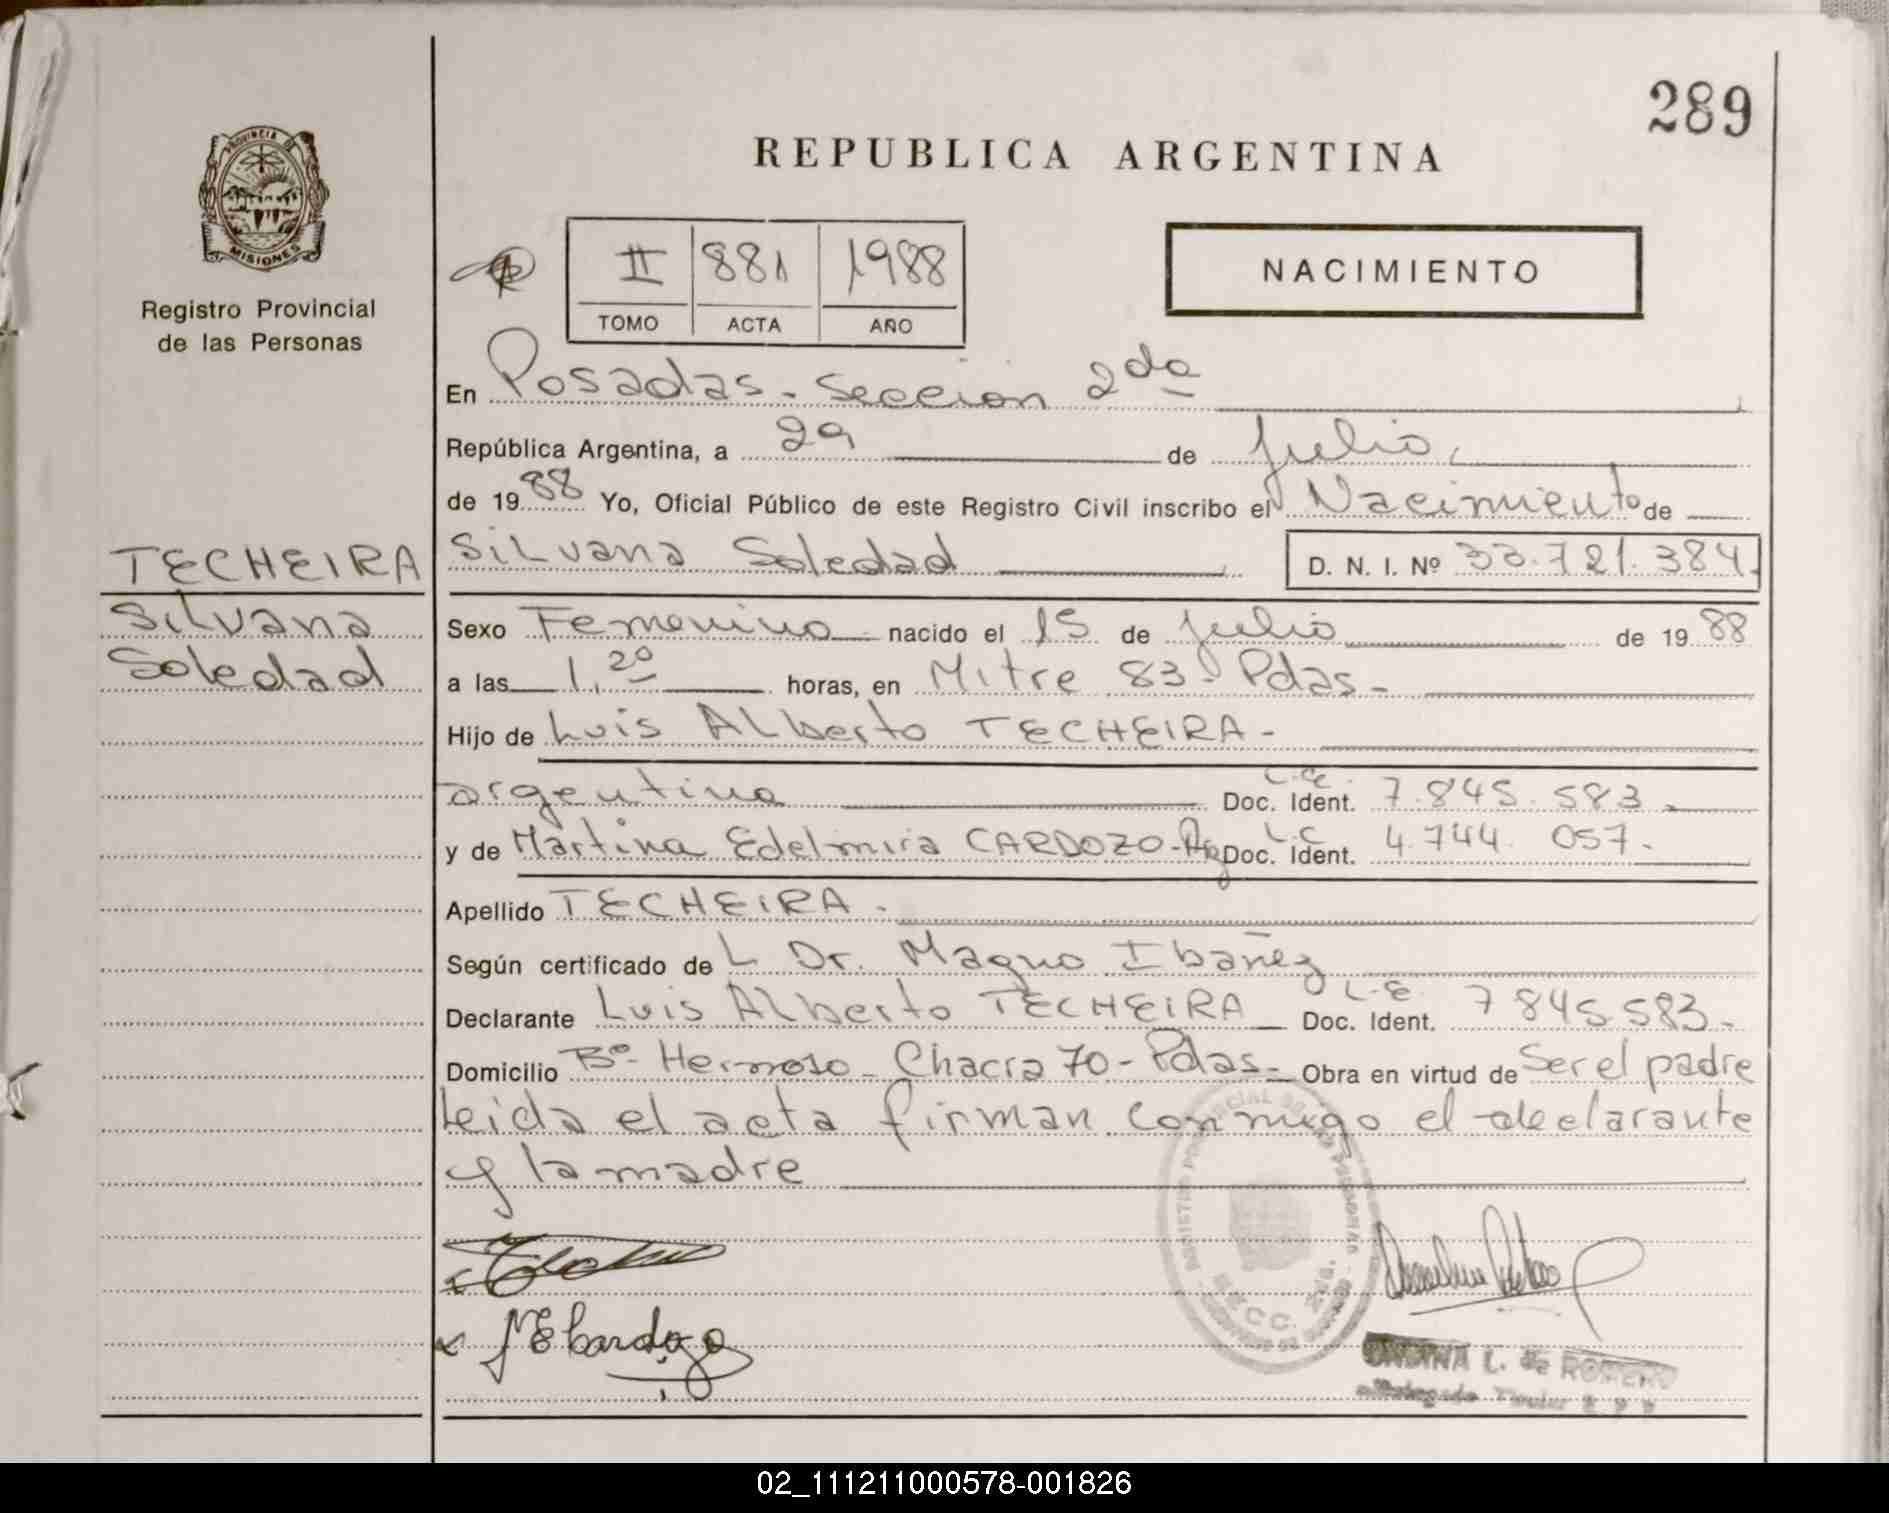 289
REPUBLICA ARGENTINA
PROVINCIA DE
MISIONES
Registro Provincial
de las Personas
II 881 1988
TOMO ACTA AÑO
NACIMIENTO
En Posadas - Seccion 2da
República Argentina, a 29 de Julio,
de 1988 Yo, Oficial Público de este Registro Civil inscribo el Nacimiento de
TECHEIRA
Silvana Soledad D. N. I. Nº 33.721.384.
Silvana
Soledad
Sexo Femenino nacido el 15 de Julio de 1988
a las 1,20 horas, en Mitre 83 - Pdas -
Hijo de Luis Alberto TECHEIRA -
argentino L.E. Doc. Ident. 7.845.583.
y de Martina Edelmira CARDOZO - Arg L.C Doc. Ident. 4.744.057.
Apellido TECHEIRA.
Según certificado de L Dr. Magno Ibañez
Declarante Luis Alberto TECHEIRA L.E. Doc. Ident. 7845583.
Domicilio Bº Hermoso - Chacra 70 - Pdas - Obra en virtud de Ser el padre
Leida el acta firman conmigo el declarante
y la madre
REGISTRO PROVINCIAL DE LAS PERSONAS
SECC. 2da.
MECardozo
ONDINA L. de ROMERO
Delegado Titular
02_111211000578-001826